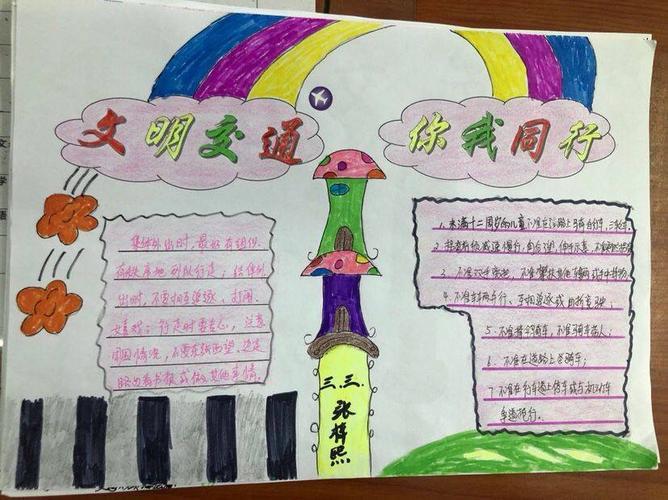 文明交通
你我同行
集体外出时,最好有组织、
有秩序地列队行走;结伴外
出时,不要相互追逐、打闹、
嬉戏;行走时要专心,注意
周围情况,不要东张西望、边走
边看书报或做其他事情。
1、未满十二周岁的儿童不准在道路上骑自行车、三轮车
3、不准双手离把,不准攀扶其他车辆或手中持物
4、不准车辆并行、互相追逐或曲折竞驶
5、不准骑车带人;
6、不准在道路上学骑车;
7、不准在行车道上停车或与机动车
争道抢行。
三、三、
张梓熙
文
学
语